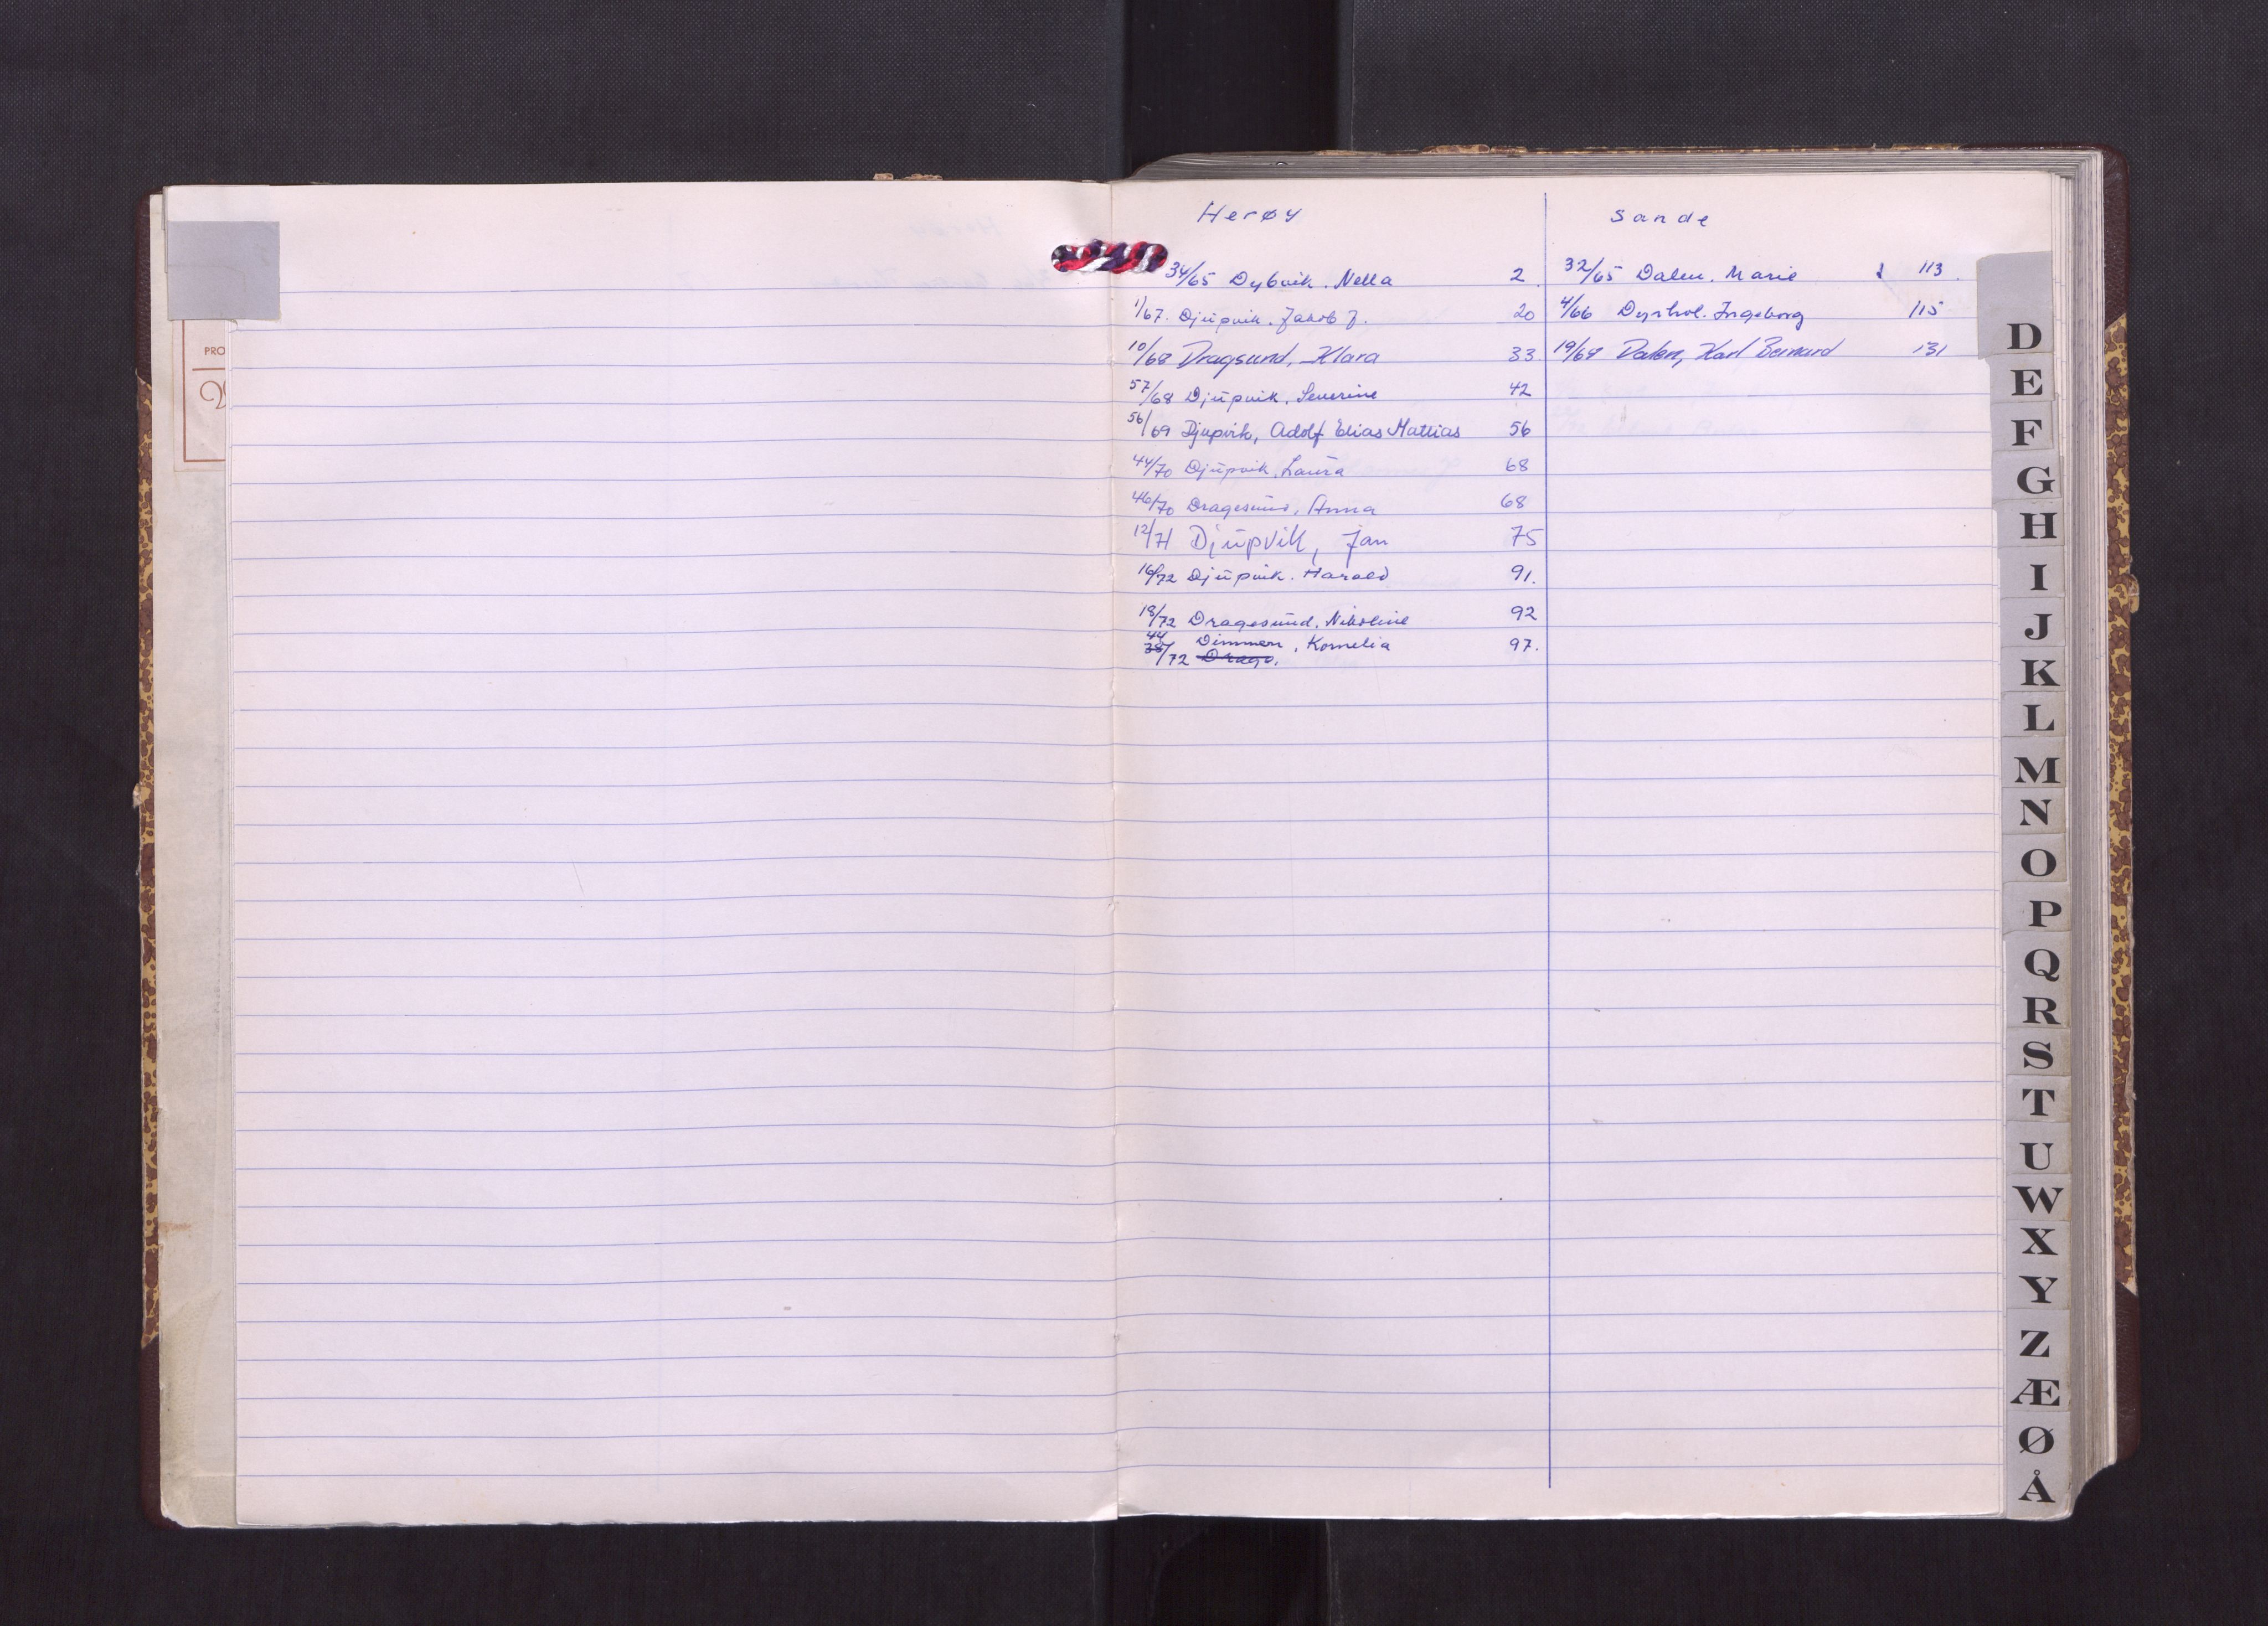 PRO
Herøy
34/65 Dybvik. Nella 2
1/67. Djupvik. Jakob J. 20
10/68 Dragsund, Klara 33
57/68 Djupvik. Severine 42
56/69 Djupvik, Adolf Elias Mattias 56
44/70 Djupvik, Laura 68
46/70 Dragesund, Anna 68
12/71 Djupvik, Jan 75
16/72 Djupvik. Harald 91.
18/72 Dragesund, Nikoline 92
44 Dimmen, Kornelia 97.
38/72 Drage,
Sande
32/65 Dalen. Marie 113
4/66 Dyrhol. Ingeborg 115
19/69 Dalen, Karl Bernard 131
D
E
F
G
H
I
J
K
L
M
N
O
P
Q
R
S
T
U
W
X
Y
Z
Æ
Ø
Å